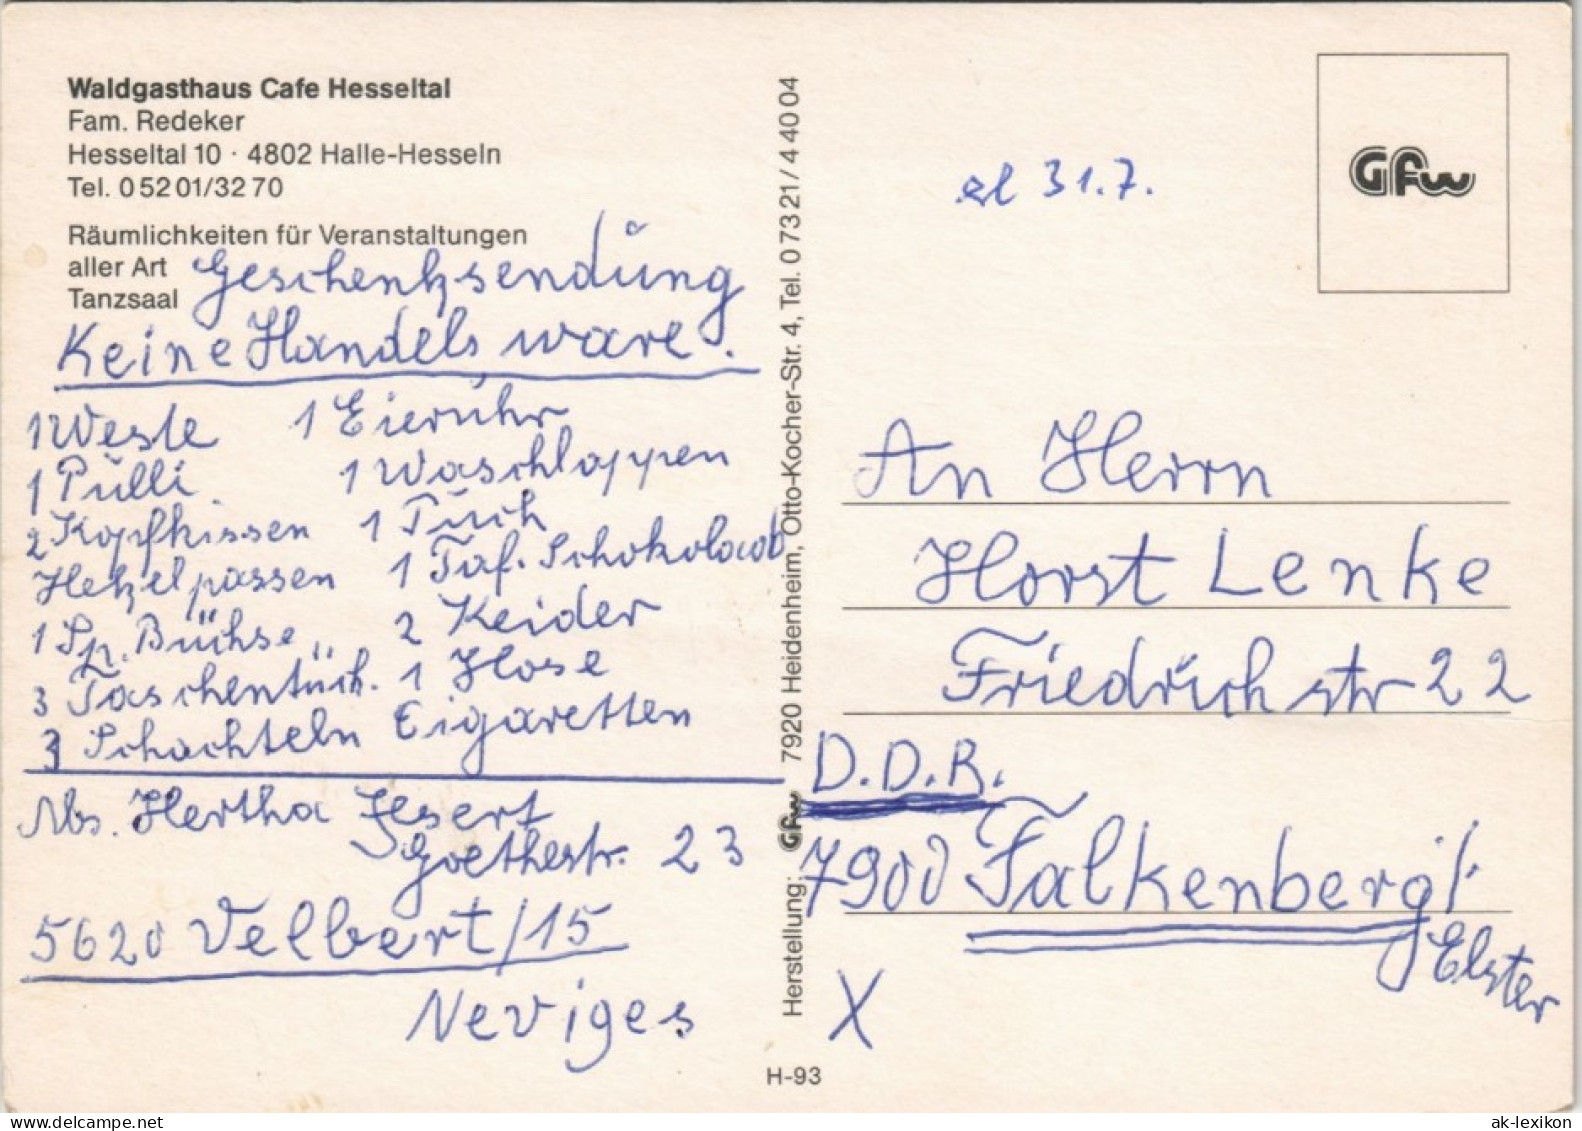 Waldgasthaus Cafe Hesseltal
Fam. Redeker
Hesseltal 10 · 4802 Halle-Hesseln
Tel. 0 52 01/32 70
Räumlichkeiten für Veranstaltungen
aller Art
Tanzsaal
Geschenksendung
Keine Handelsware.
1 Weste
1 Pulli
2 Kopfkissen
1 Sp. Büchse
3 Taschentüch.
3 Schachteln Cigaretten
1 Eieruhr
1 Waschlappen
1 Tuch
1 Taf. Schokolad
2 Kleider
1 Hose
Abs. Hertha
Goethestr. 23
5620 Velbert/15
Neviges
Herstellung: Gfw 7920 Heidenheim, Otto-Kocher-Str. 4, Tel. 0 73 21 / 4 40 04
H-93
31.7.
Gfw
An Herrn
Horst Lenke
Friedrichstr 22
D.D.R.
7900 Falkenberg/.
Elster
X
ak-lexikon